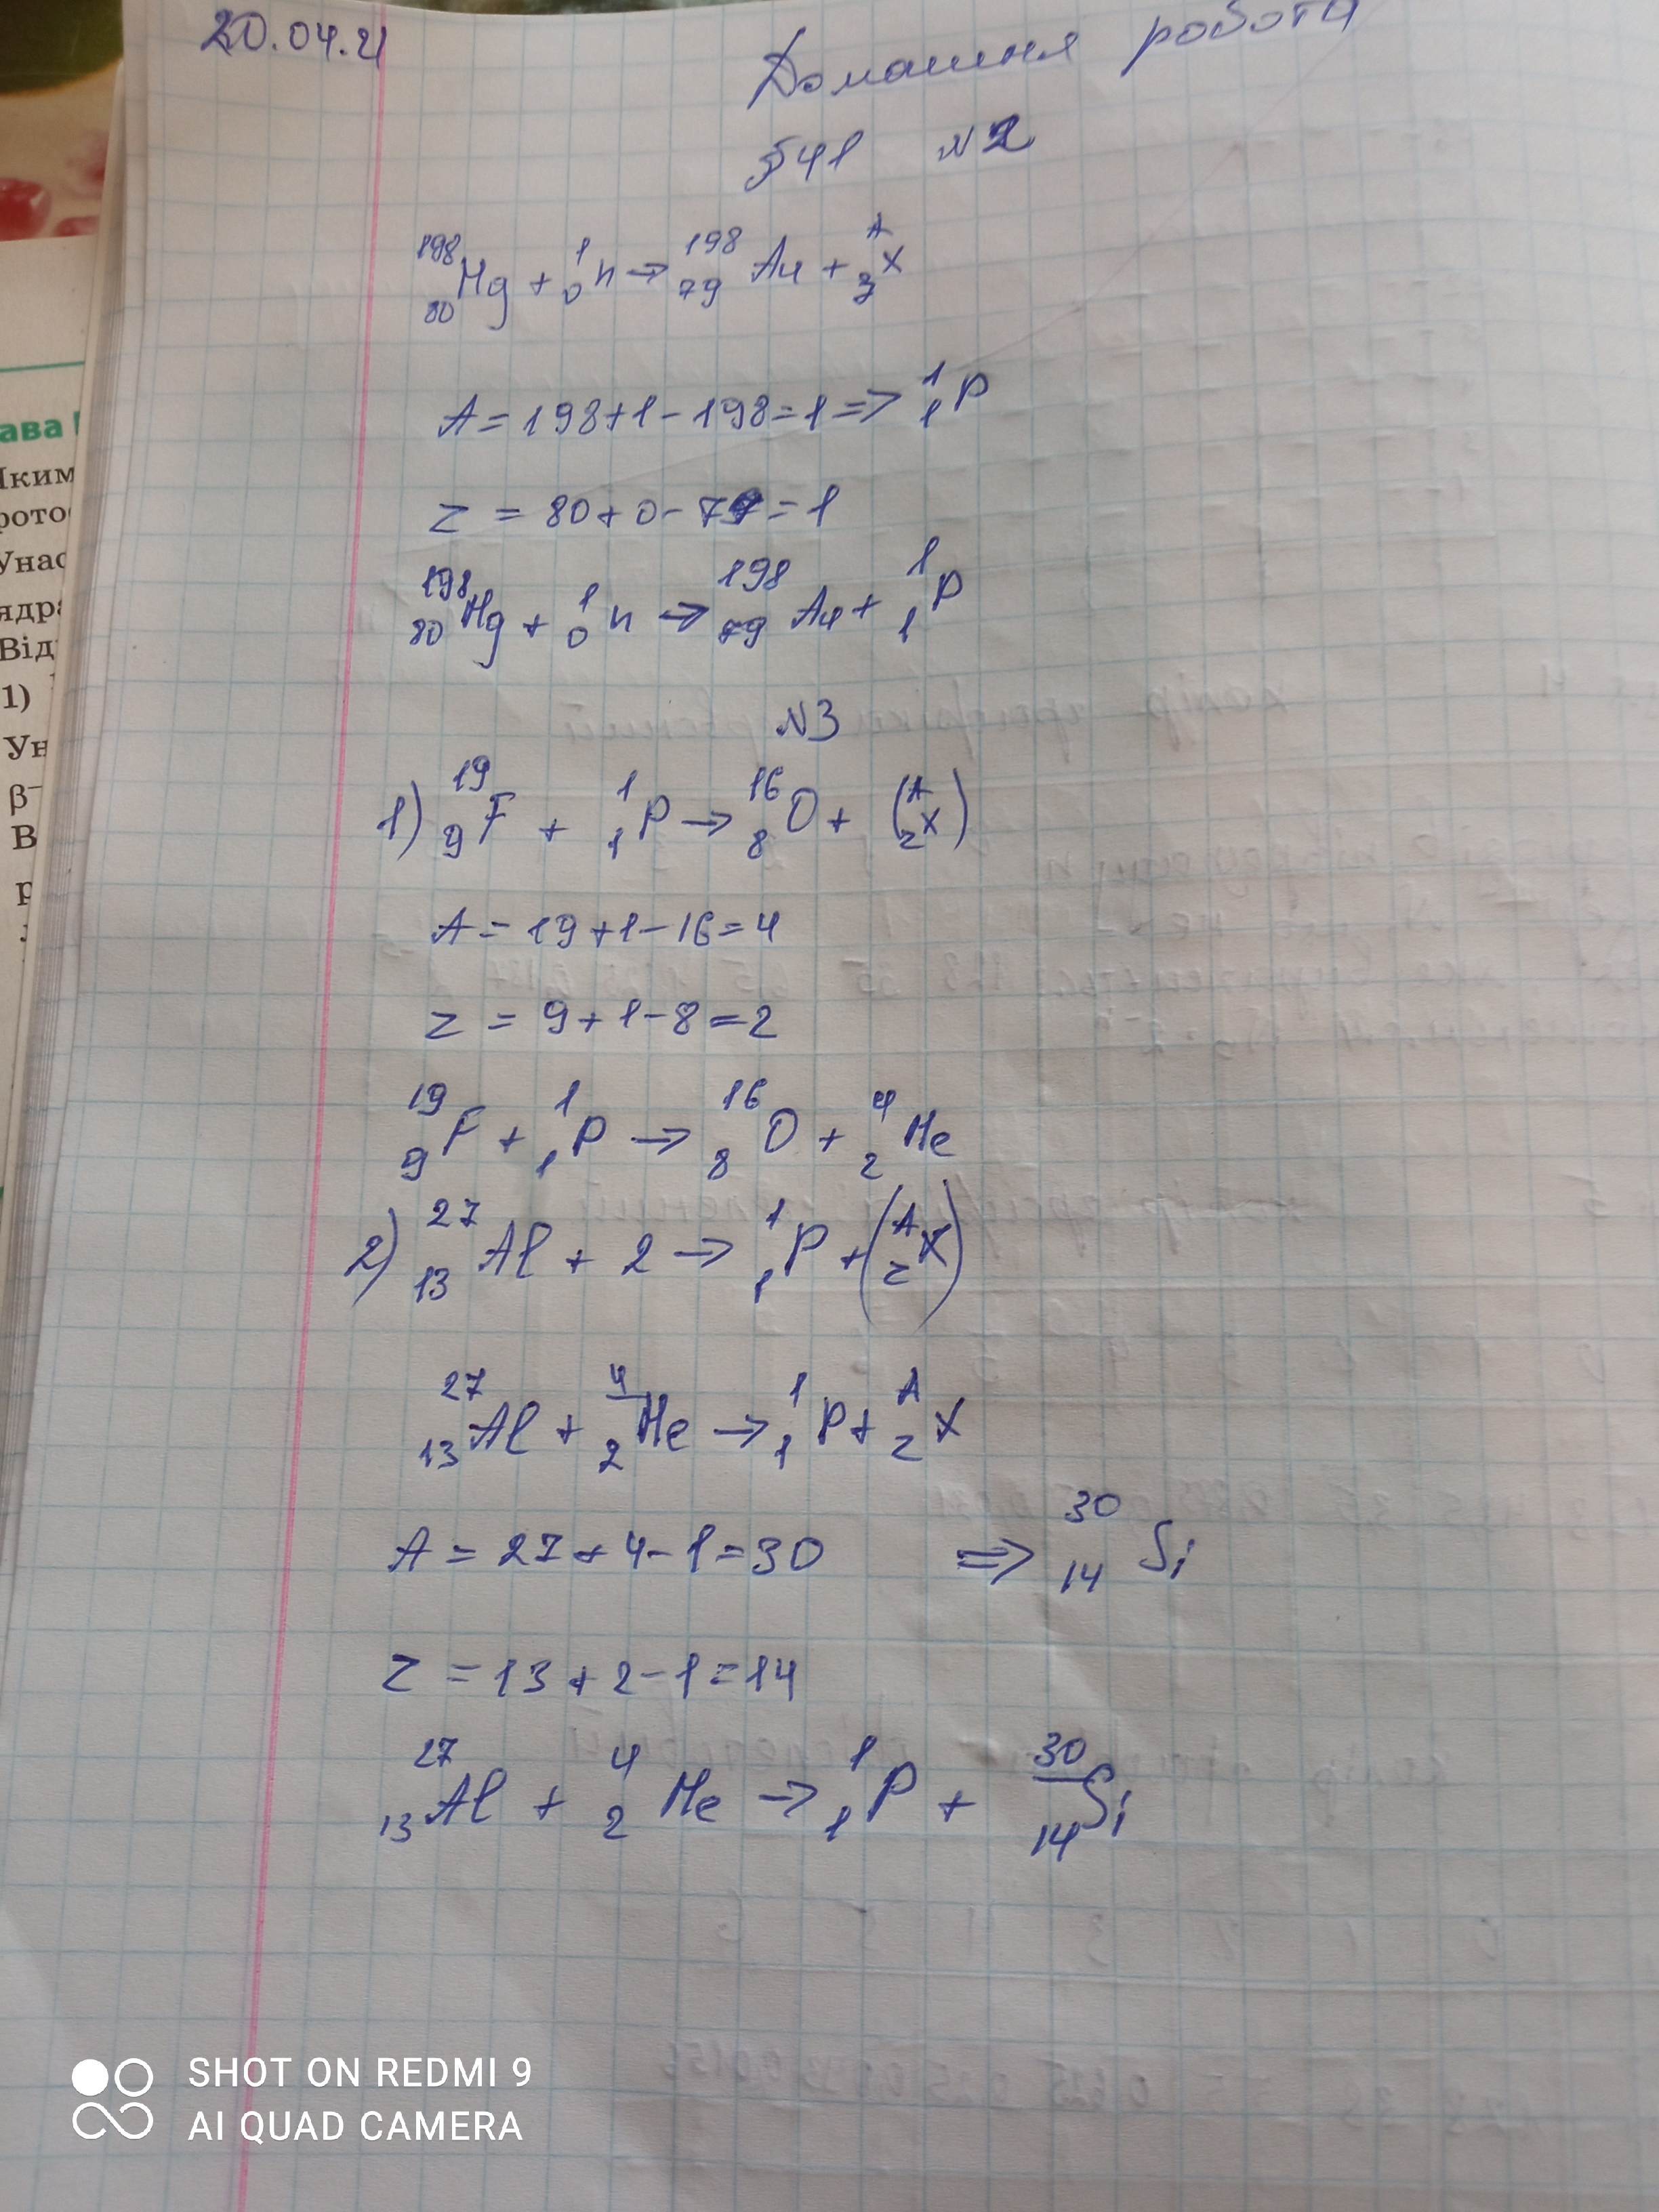 20.04.21
Домашня робота
§41 №2
¹⁹⁸₈₀Hg + ¹₀n → ¹⁹⁸₇₉Au + ᴬ_zX
A = 198+1-198=1 => ¹₁P
Z = 80+0-79=1
¹⁹⁸₈₀Hg + ¹₀n → ¹⁹⁸₇₉Au + ¹₁P
№3
1) ¹⁹₉F + ¹₁P → ¹⁶₈O + (ᴬ_zX)
A = 19+1-16=4
Z = 9+1-8=2
¹⁹₉F + ¹₁P → ¹⁶₈O + ⁴₂He
2) ²⁷₁₃Al + 2 → ¹₁P + (ᴬ_zX)
²⁷₁₃Al + ⁴₂He → ¹₁P + ᴬ_zX
A = 27+4-1=30 => ³⁰₁₄Si
Z = 13+2-1=14
²⁷₁₃Al + ⁴₂He → ¹₁P + ³⁰₁₄Si
ава
Яким
рото
Унас
ядра
Від
1)
Ун
β⁻
В
р
SHOT ON REDMI 9
AI QUAD CAMERA